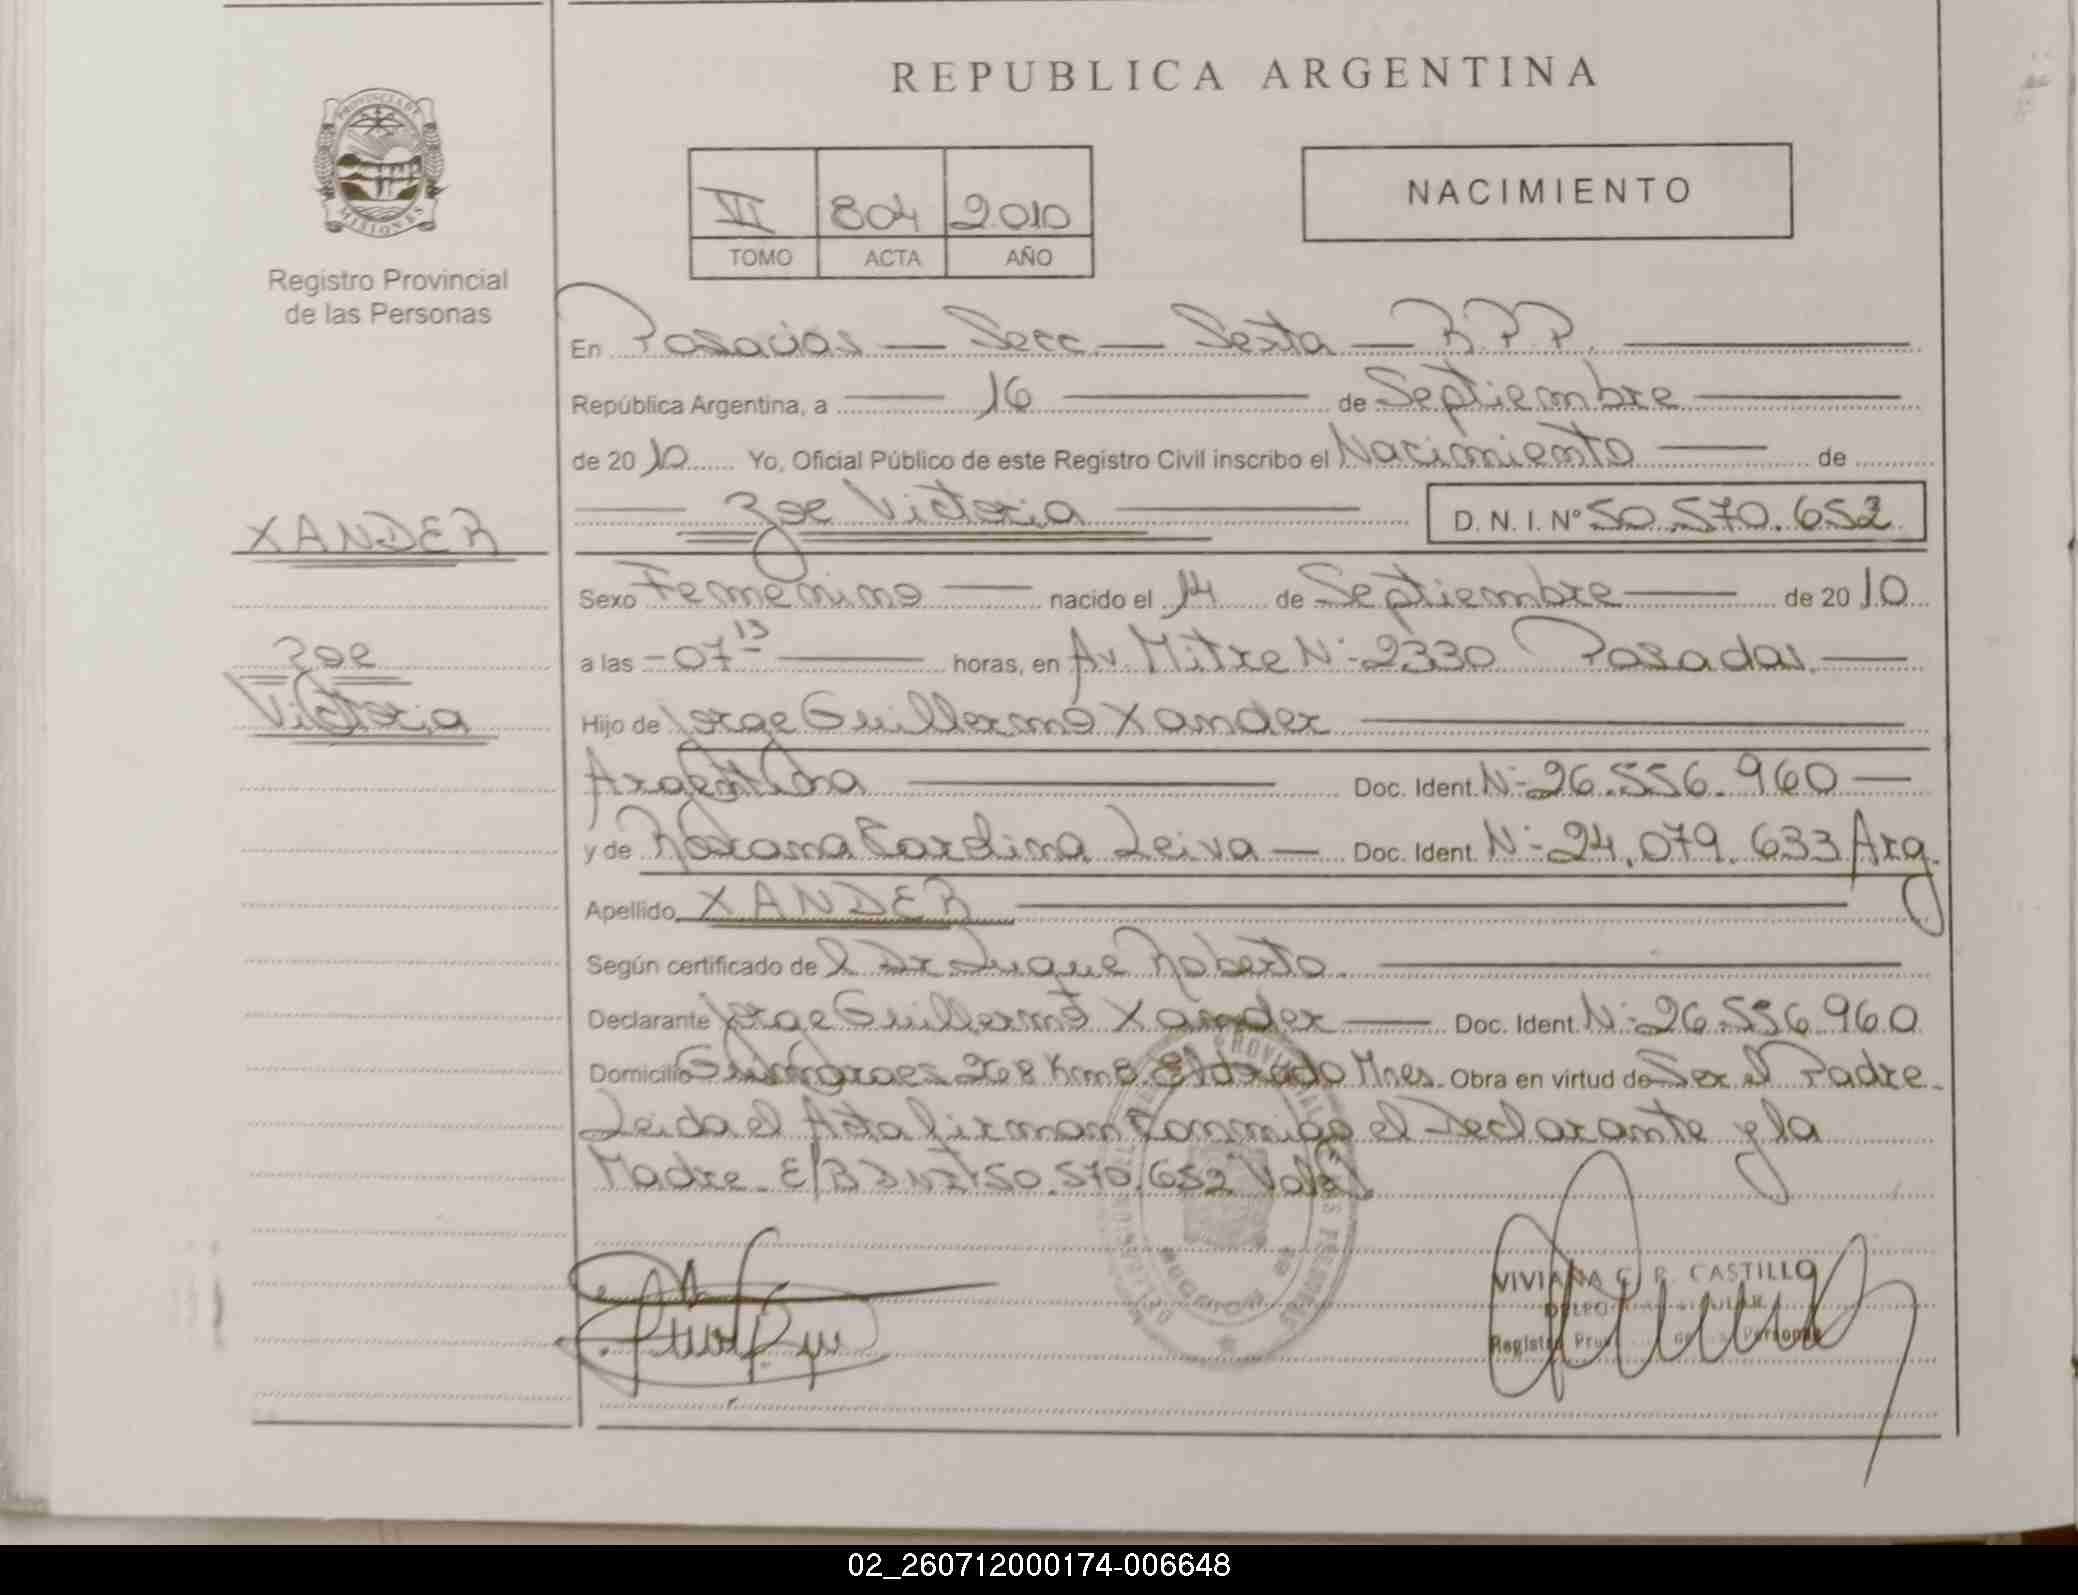 REPUBLICA ARGENTINA
PROVINCIA DE
MISIONES
Registro Provincial
de las Personas
VI 804 2010
TOMO ACTA AÑO
NACIMIENTO
En Posadas — Secc — Sexta — R.P.P.
República Argentina, a 16 de Septiembre
de 2010 Yo, Oficial Público de este Registro Civil inscribo el Nacimiento de
Zoe Victoria D. N. I. Nº 50.570.652
XANDER
Sexo Femenino nacido el 14 de Septiembre de 2010
Zoe
a las - 07 13 horas, en Av. Mitre Nº 2330 Posadas.
Victoria
Hijo de Jorge Guillermo Xander
Argentina Doc. Ident. Nº 26.556.960
y de Roxana Carolina Leiva Doc. Ident. Nº 24.079.633 Arg.
Apellido XANDER
Según certificado de l Dr Luque Roberto.
Declarante Jorge Guillermo Xander Doc. Ident. Nº 26.556.960
Domicilio 268 Km 8 Eldorado Mnes. Obra en virtud de Ser el Padre.
Leida el Acta firman Conmigo el Declarante y la
Madre. E/ 50.570.652 Vale.
VIVIANA G. R. CASTILLO
Registro
02_260712000174-006648